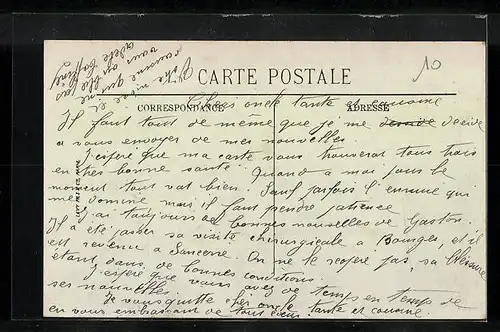 10
CARTE POSTALE
CORRESPONDANCE
ADRESSE
Chers oncle tante et cousine
Il faut tout de même que je me decide
a vous envoyer de mes nouvelles.
J'espère que ma carte vous trouveras tous trois
en très bonne santé. Quand a moi pour le
moment tout vat bien. Sauf parfois l'ennui qui
me domine mais il faut prendre patience
J'ai toujours de bonnes nouvelles de Gaston.
Il a été passer sa visite chirurgicale a Bourges, et il
est revenu a Sancerre. On ne le reopère pas, sa blessure
étant dans de bonnes conditions.
J'espère que vous avez de temps en temps de
ses nouvelles.
Je vous quitte cher oncle tante et cousine
en vous embrassant de tout coeur